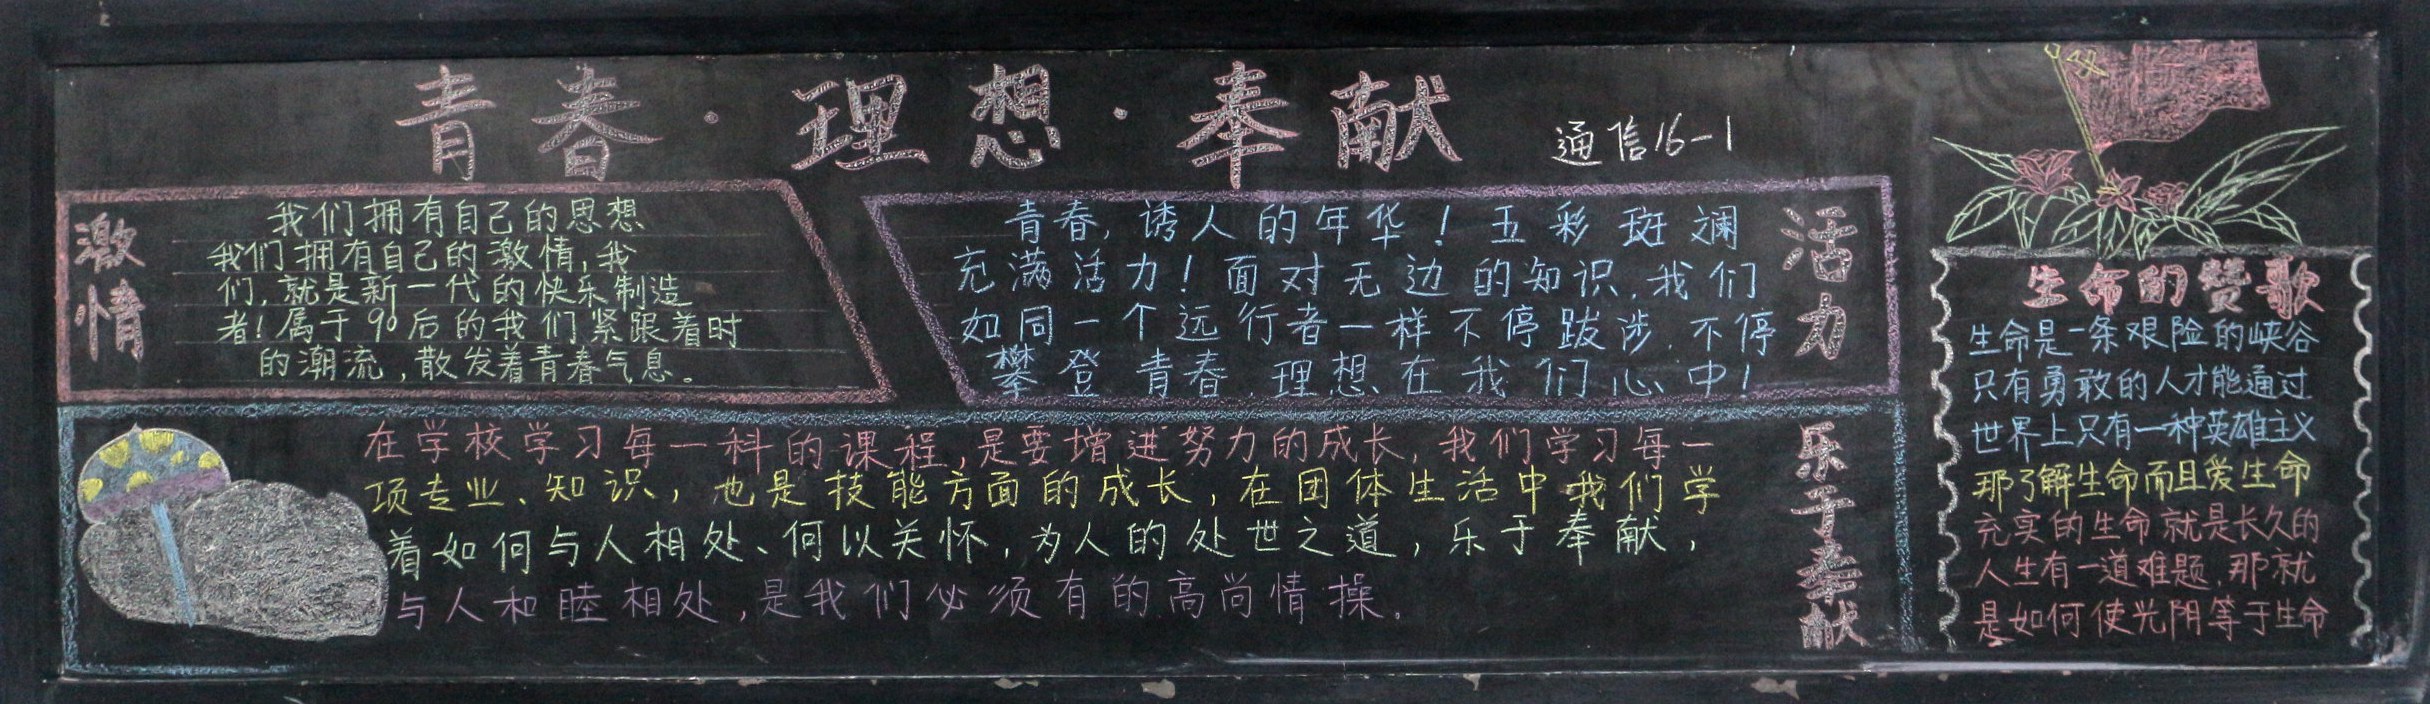 青春·理想·奉献
通信16-1
激情
我们拥有自己的思想
我们拥有自己的激情,我
们,就是新一代的快乐制造
者!属于90后的我们紧跟着时
的潮流,散发着青春气息。
青春,诱人的年华!五彩斑斓
充满活力!面对无边的知识,我们
如同一个远行者一样不停跋涉,不停
攀登青春,理想在我们心中!
活力
在学校学习每一科的课程,是要增进努力的成长,我们学习每一
项专业、知识,也是技能方面的成长,在团体生活中我们学
着如何与人相处、何以关怀,为人的处世之道,乐于奉献,
与人和睦相处,是我们必须有的高尚情操。
乐于奉献
生命的赞歌
生命是一条艰险的峡谷
只有勇敢的人才能通过
世界上只有一种英雄主义
那了解生命而且爱生命
充实的生命就是长久的
人生有一道难题,那就
是如何使光阴等于生命